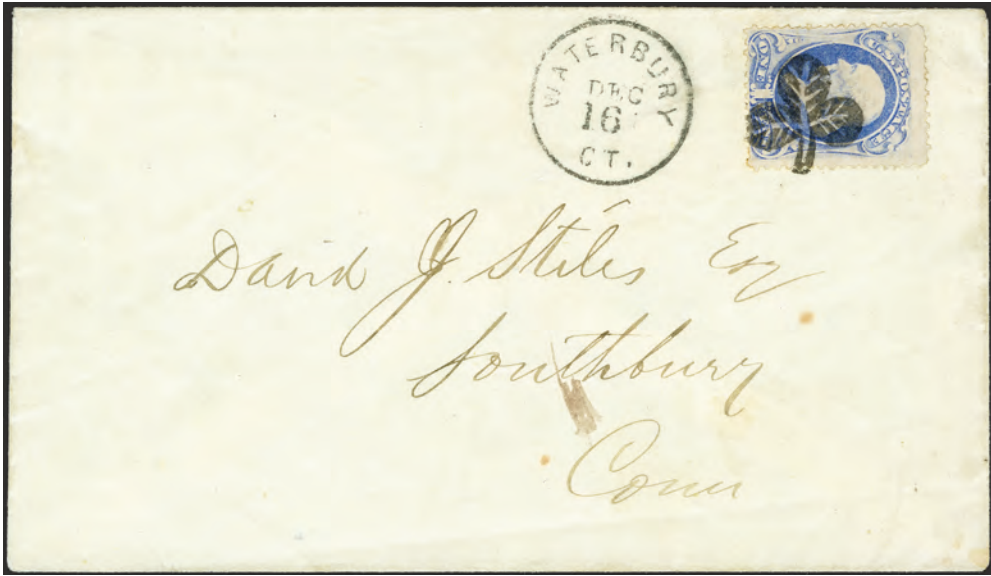 WATERBURY
DEC
16
CT.
ONE
David J. Stiles Esq
Southbury
Conn